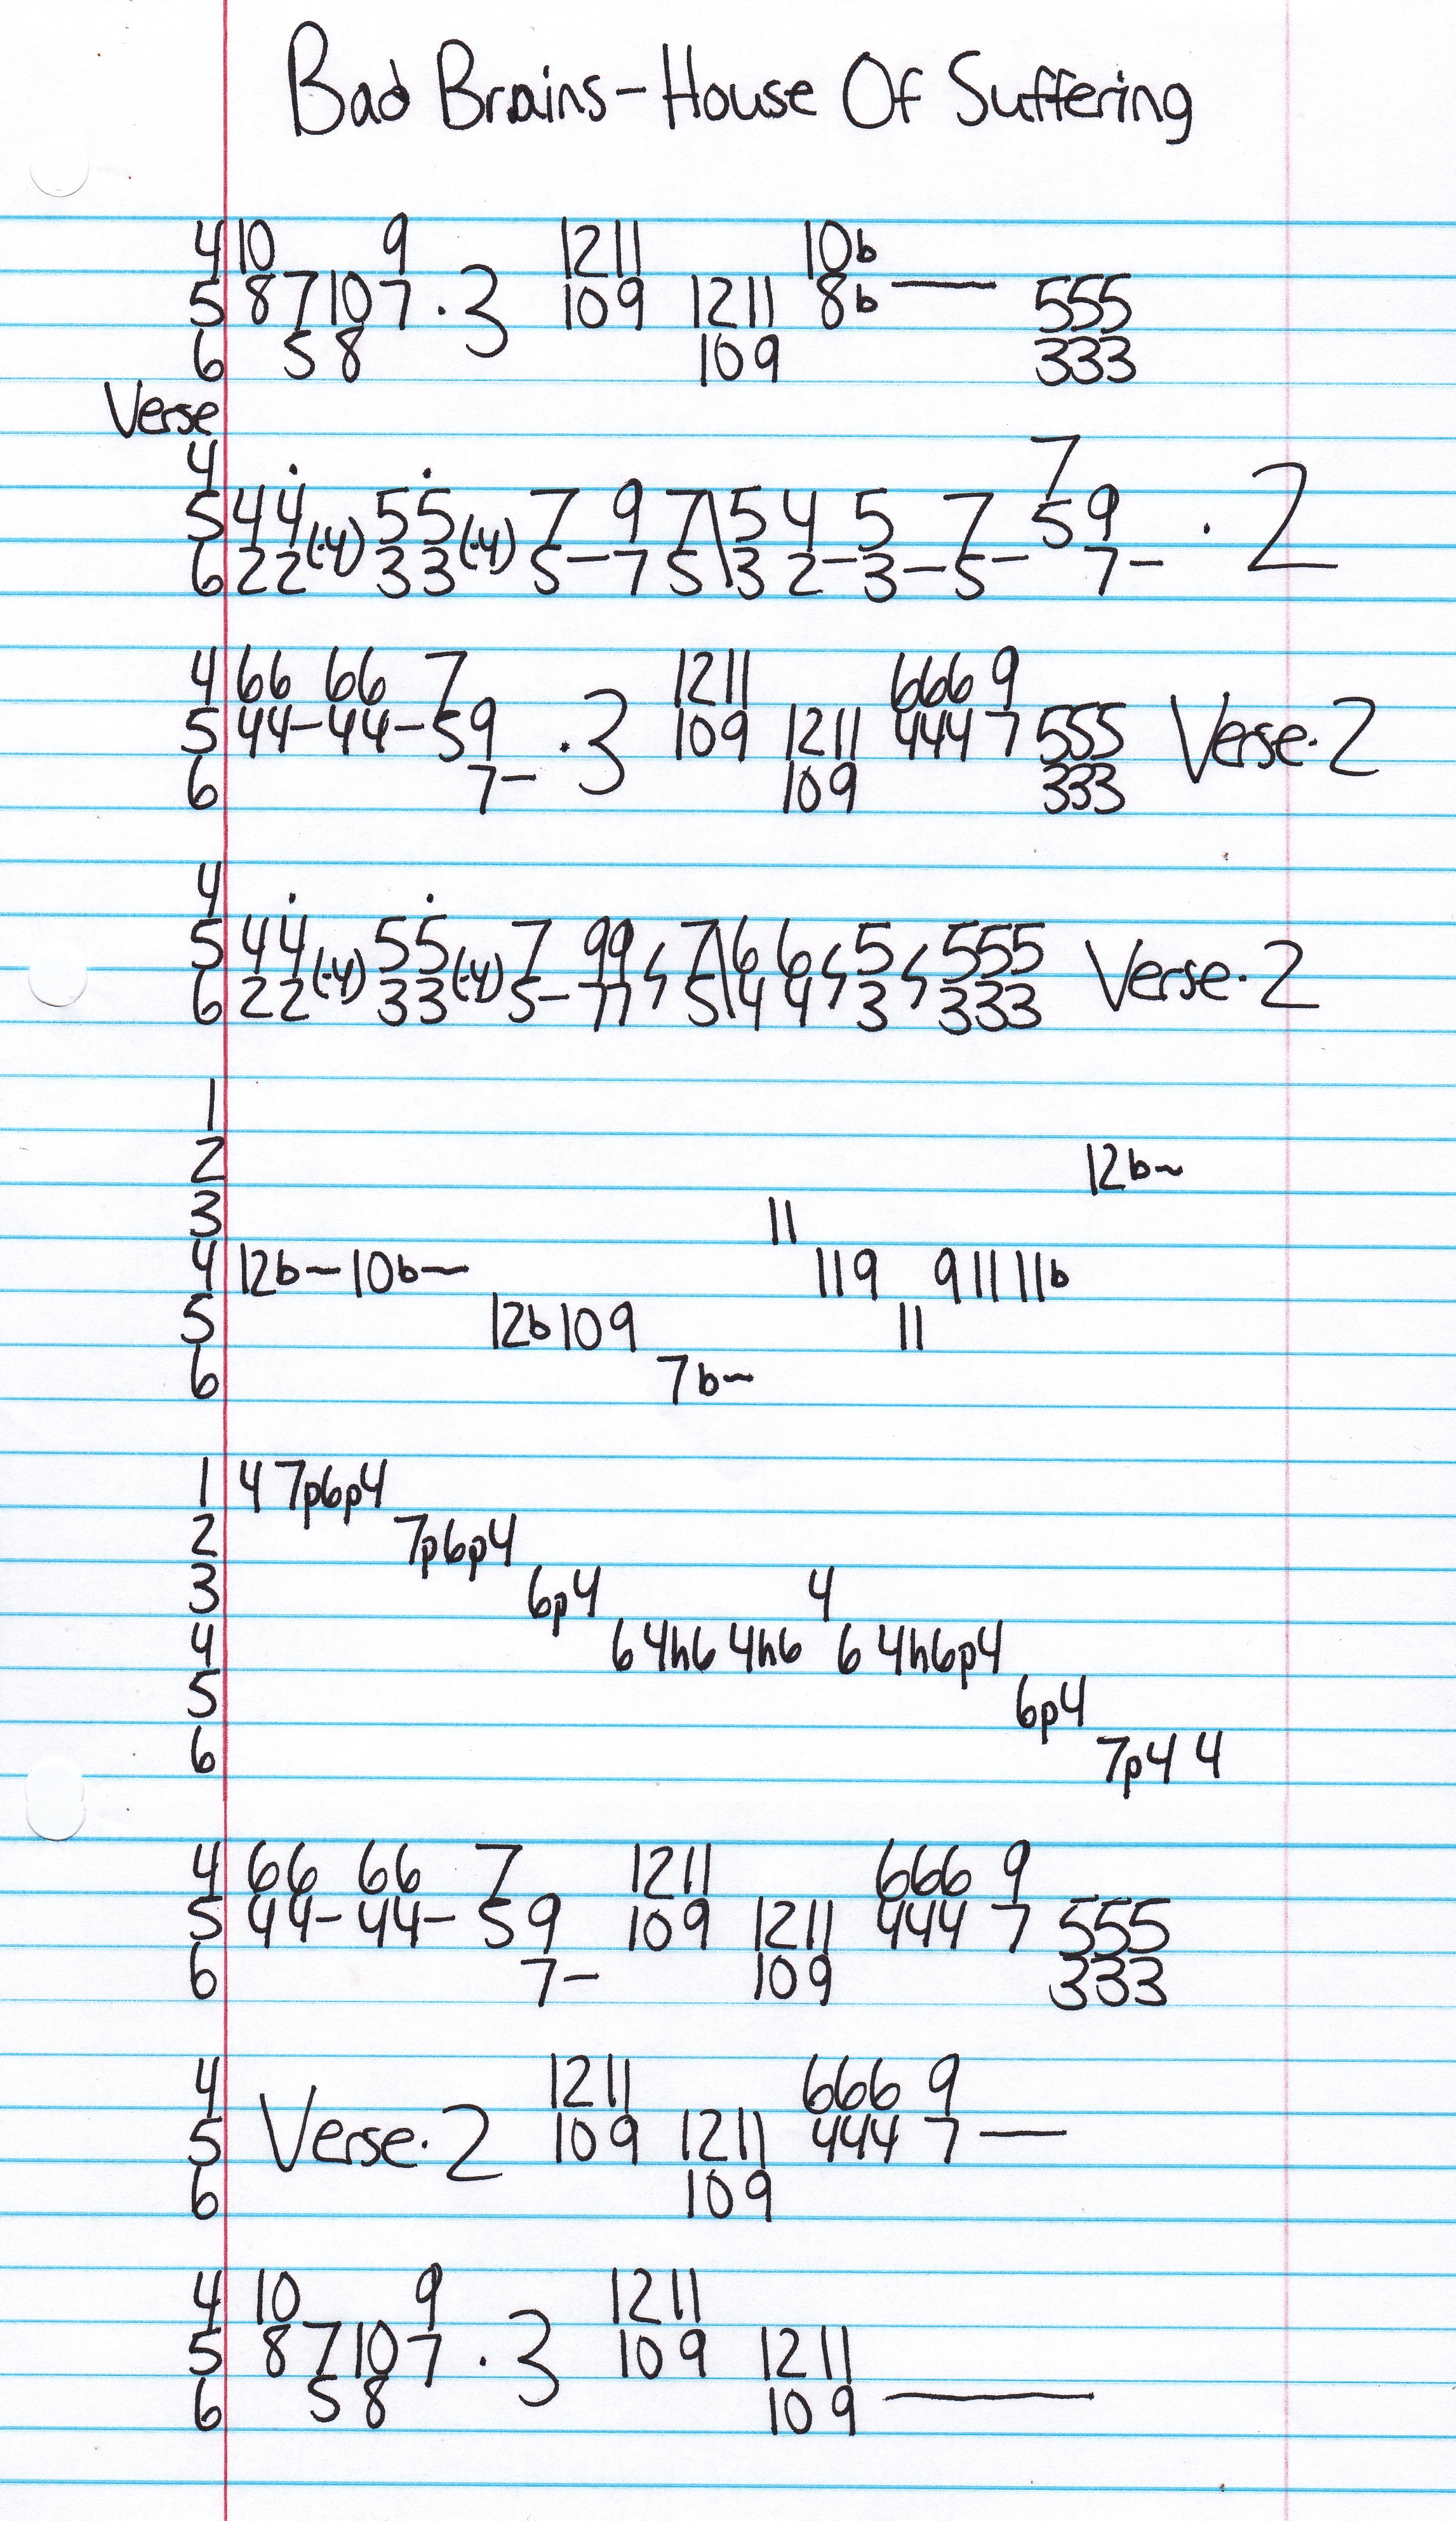 Bad Brains - House Of Suffering
4 10 9 12 11 10b
5 8 7 10 7 . 3 10 9 12 11 8b — 555
6 5 8 10 9 333
Verse
4 7
5 4 4 (.4) 5 5 (.4) 7 9 7 \ 5 4 5 7 5 9 . 2
6 2 2 3 3 5 – 7 5 3 2 – 3 – 5 – 7 –
4 66 66 7 12 11 666 9
5 44 – 44 – 5 9 . 3 10 9 12 11 444 7 555 Verse . 2
6 7 – 10 9 333
4
5 4 4 (.4) 5 5 (.4) 7 99 7 \ 6 6 5 555 Verse . 2
6 2 2 3 3 5 – 77 5 4 4 3 333
1
2 12b~
3 11
4 12b~ 10b~ 11 9 9 11 11b
5 12b 10 9 11
6 7b~
1 4 7p6p4
2 7p6p4
3 6p4 4
4 6 4h6 4h6 6 4h6p4
5 6p4
6 7p4 4
4 66 66 7 12 11 666 9
5 44 – 44 – 5 9 10 9 12 11 444 7 555
6 7 – 10 9 333
4 12 11 666 9
5 Verse . 2 10 9 12 11 444 7 —
6 10 9
4 10 9 12 11
5 8 7 10 7 . 3 10 9 12 11
6 5 8 10 9 —